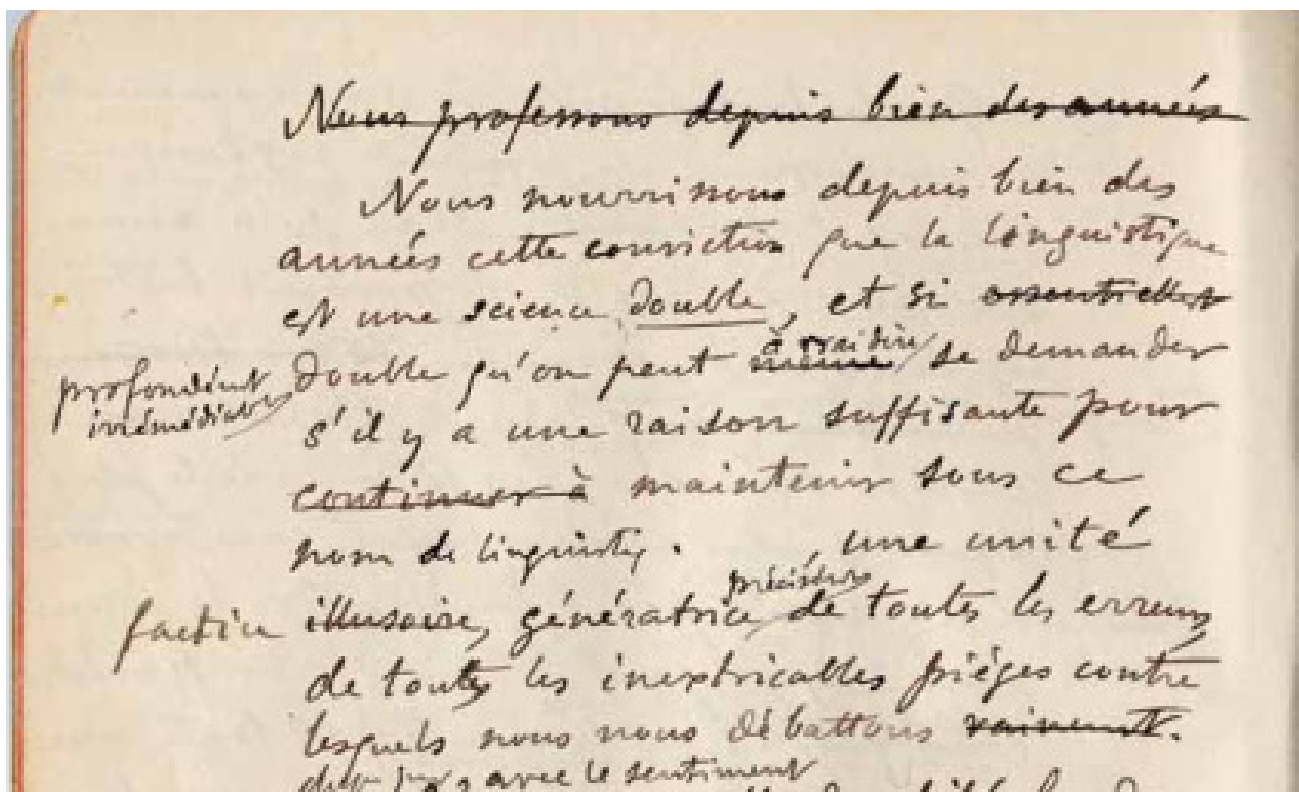 Nous professons depuis bien des années
Nous nourrissons depuis bien des
années cette conviction que la linguistique
est une science double, et si essentiellet
profondémt irrémédiabt
double qu'on peut même à vrai dire se demander
s'il y a une raison suffisante pour
continuer à maintenir sous ce
nom de linguistiq. , une unité
factice illusoire, génératrice précisémt de toutes les erreurs
de toutes les inextricables pièges contre
lesquels nous nous débattons vainement.
avec le sentiment